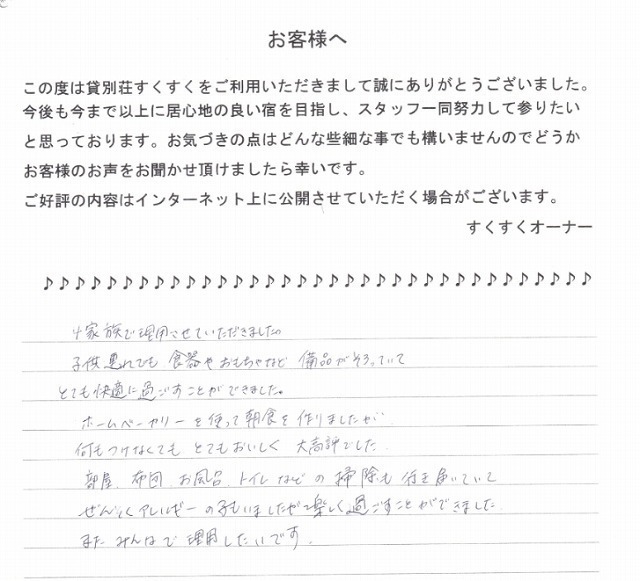 お客様へ
この度は貸別荘すくすくをご利用いただきまして誠にありがとうございました。
今後も今まで以上に居心地の良い宿を目指し、スタッフ一同努力して参りたい
と思っております。お気づきの点はどんな些細な事でも構いませんのでどうか
お客様のお声をお聞かせ頂けましたら幸いです。
ご好評の内容はインターネット上に公開させていただく場合がございます。
すくすくオーナー
♪♪♪♪♪♪♪♪♪♪♪♪♪♪♪♪♪♪♪♪♪♪♪♪♪♪♪♪♪♪♪♪♪♪♪
4家族で理用させていただきました。
子供連れでも 食器やおもちゃなど 備品がそろっていて
とても快適に過ごすことができました。
ホームベーカリーを使って朝食を作りましたが
何もつけなくても とてもおいしく 大高評でした
部屋、布団、お風呂、トイレなどの掃除も行き届いていて
ぜんそくアレルギーの子もいましたが楽しく過ごすことができました
また みんなで 理用したいです。